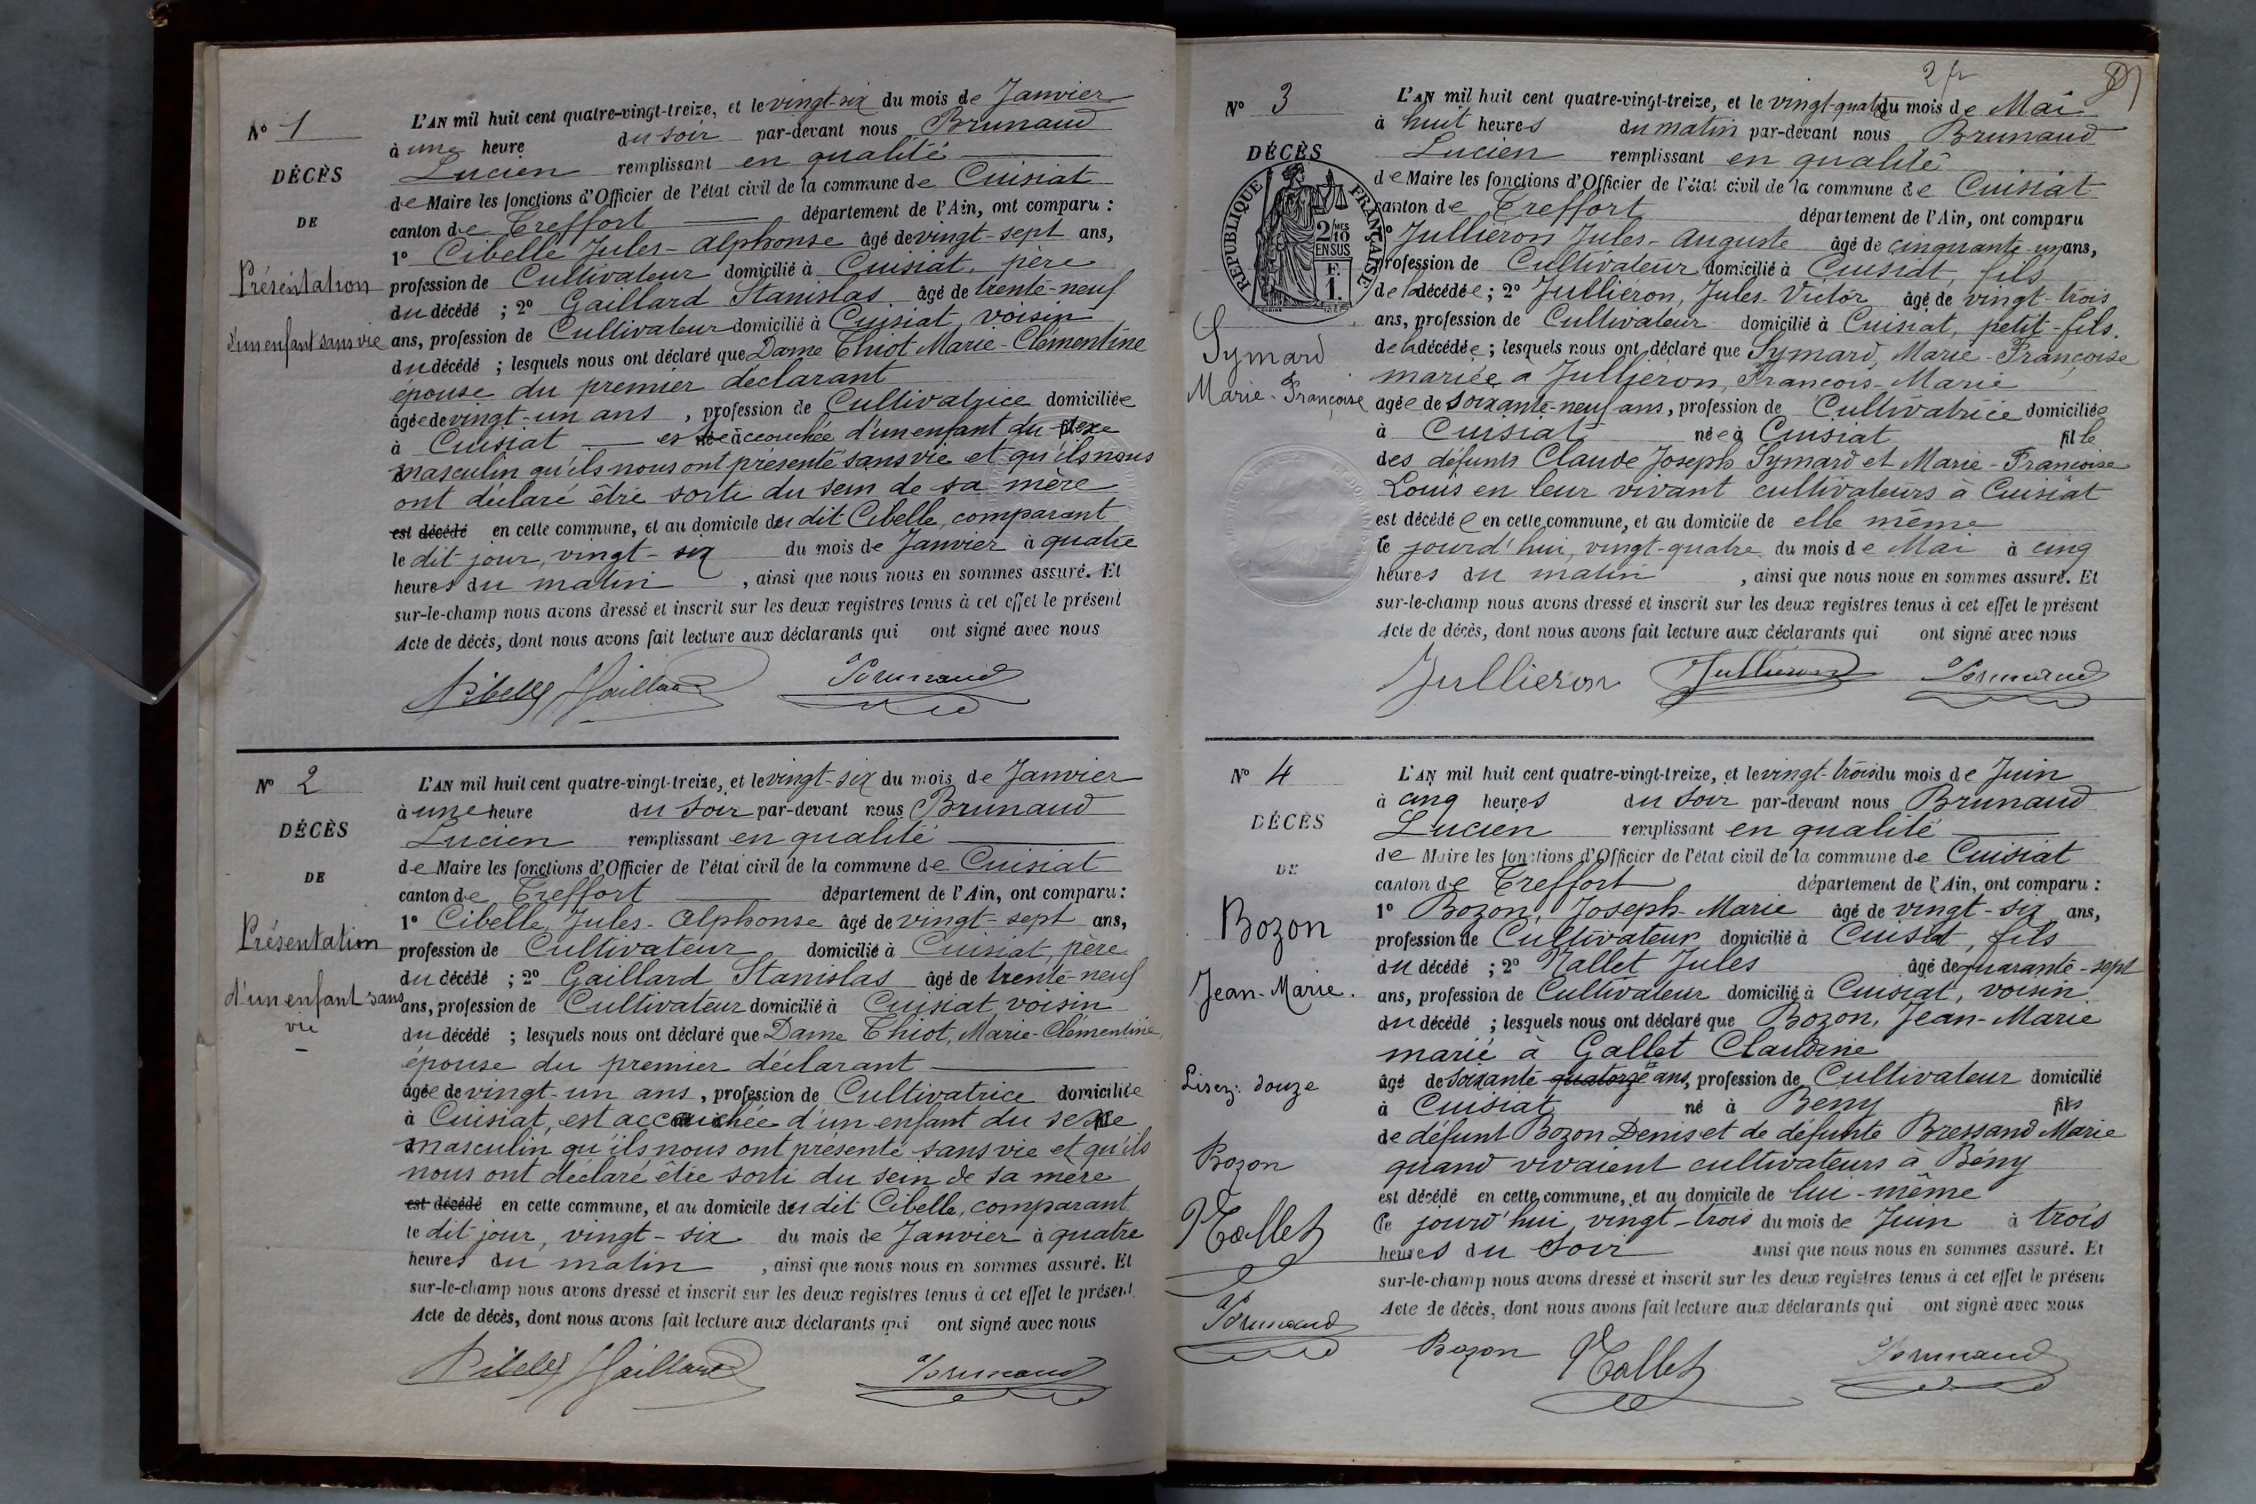 N° 1
DÉCÈS
DE
Présentation
d'un enfant sans vie
L'AN mil huit cent quatre-vingt-treize, et le vingt-six du mois de Janvier
à une heure du soir par-devant nous Brunaud
Lucien remplissant en qualité
de Maire les fonctions d'Officier de l'état civil de la commune de Cuisiat
canton de Treffort département de l'Ain, ont comparu :
1° Cibelle Jules-Alphonse âgé de vingt-sept ans,
profession de Cultivateur domicilié à Cuisiat, père
du décédé ; 2° Gaillard Stanislas âgé de trente-neuf
ans, profession de Cultivateur domicilié à Cuisiat voisin
du décédé ; lesquels nous ont déclaré que Dame Thiot Marie-Clémentine
épouse du premier déclarant
âgée de vingt-un ans, profession de Cultivatrice domiciliée
à Cuisiat es accouchée d'un enfant du sexe
masculin qu'ils nous ont présenté sans vie et qu'ils nous
ont déclaré être sorti du sein de sa mère
est décédé en cette commune, et au domicile du dit Cibelle, comparant
le dit jour, vingt-six du mois de Janvier à quatre
heures du matin, ainsi que nous nous en sommes assuré. Et
sur-le-champ nous avons dressé et inscrit sur les deux registres tenus à cet effet le présent
Acte de décès, dont nous avons fait lecture aux déclarants qui ont signé avec nous
Cibelle Gaillard Brunaud
N° 2
DÉCÈS
DE
Présentation
d'un enfant sans
vie
L'AN mil huit cent quatre-vingt-treize, et le vingt-six du mois de Janvier
à une heure du soir par-devant nous Brunaud
Lucien remplissant en qualité
de Maire les fonctions d'Officier de l'état civil de la commune de Cuisiat
canton de Treffort département de l'Ain, ont comparu :
1° Cibelle, Jules-Alphonse âgé de vingt-sept ans,
profession de Cultivateur domicilié à Cuisiat, père
du décédé ; 2° Gaillard Stanislas âgé de trente-neuf
ans, profession de Cultivateur domicilié à Cuisiat voisin
du décédé ; lesquels nous ont déclaré que Dame Thiot, Marie-Clémentine,
épouse du premier déclarant
âgée de vingt-un ans, profession de Cultivatrice domiciliée
à Cuisiat, est accouchée d'un enfant du sexe
masculin qu'ils nous ont présenté sans vie et qu'ils
nous ont déclaré être sorti du sein de sa mère
est décédé en cette commune, et au domicile du dit Cibelle, comparant
le dit jour, vingt-six du mois de Janvier à quatre
heures du matin, ainsi que nous nous en sommes assuré. Et
sur-le-champ nous avons dressé et inscrit sur les deux registres tenus à cet effet le présent
Acte de décès, dont nous avons fait lecture aux déclarants qui ont signé avec nous
Cibelle Gaillard Brunaud
2 fr
N° 3
DÉCÈS
RÉPUBLIQUE FRANÇAISE
2/10MES
EN SUS
F.
1.
Symard
Marie-Françoise
L'AN mil huit cent quatre-vingt-treize, et le vingt-quatre du mois de Mai
à huit heures du matin par-devant nous Brunaud
Lucien remplissant en qualité
de Maire les fonctions d'Officier de l'état civil de la commune de Cuisiat
canton de Treffort département de l'Ain, ont comparu
Jullieron Jules-Auguste âgé de cinquante-un ans,
profession de Cultivateur domicilié à Cuisiat, fils
de la décédée ; 2° Jullieron, Jules-Victor âgé de vingt-trois
ans, profession de Cultivateur domicilié à Cuisiat, petit-fils.
de la décédée ; lesquels nous ont déclaré que Symard, Marie-Françoise
mariée à Jullieron, François-Marie
agée de soixante-neuf ans, profession de Cultivatrice domiciliée
à Cuisiat née à Cuisiat fille
des défunts Claude Joseph Symard et Marie-Francoise
Louis en leur vivant cultivateurs à Cuisiat
est décédée en cette commune, et au domicile de elle même
le jourd'hui, vingt-quatre du mois de Mai à cinq
heures du matin, ainsi que nous nous en sommes assuré. Et
sur-le-champ nous avons dressé et inscrit sur les deux registres tenus à cet effet le présent
Acte de décès, dont nous avons fait lecture aux déclarants qui ont signé avec nous
Jullieron Jullieron Brunaud
N° 4
DÉCÈS
DE
Bozon
Jean-Marie.
Lisez: douze
Bozon
Nallet
Brunaud
L'AN mil huit cent quatre-vingt-treize, et le vingt-trois du mois de Juin
à cinq heures du soir par-devant nous Brunaud
Lucien remplissant en qualité
de Maire les fonctions d'Officier de l'état civil de la commune de Cuisiat
canton de Treffort département de l'Ain, ont comparu :
1° Bozon, Joseph-Marie âgé de vingt-six ans,
profession de Cultivateur domicilié à Cuisiat, fils
du décédé ; 2° Nallet Jules âgé de quarante-sept
ans, profession de Cultivateur domicilié à Cuisiat, voisin
du décédé ; lesquels nous ont déclaré que Bozon, Jean-Marie
marié à Gallet Claudine
âgé de soixante quatorze ans, profession de Cultivateur domicilié
à Cuisiat né à Beny fils
de défunt Bozon Denis et de défunte Bressand Marie
quand vivaient cultivateurs à Bény
est décédé en cette commune, et au domicile de lui-même
le jourd'hui, vingt-trois du mois de Juin à trois
heures du soir ainsi que nous nous en sommes assuré. Et
sur-le-champ nous avons dressé et inscrit sur les deux registres tenus à cet effet le présent
Acte de décès, dont nous avons fait lecture aux déclarants qui ont signé avec nous
Bozon Nallet Brunaud